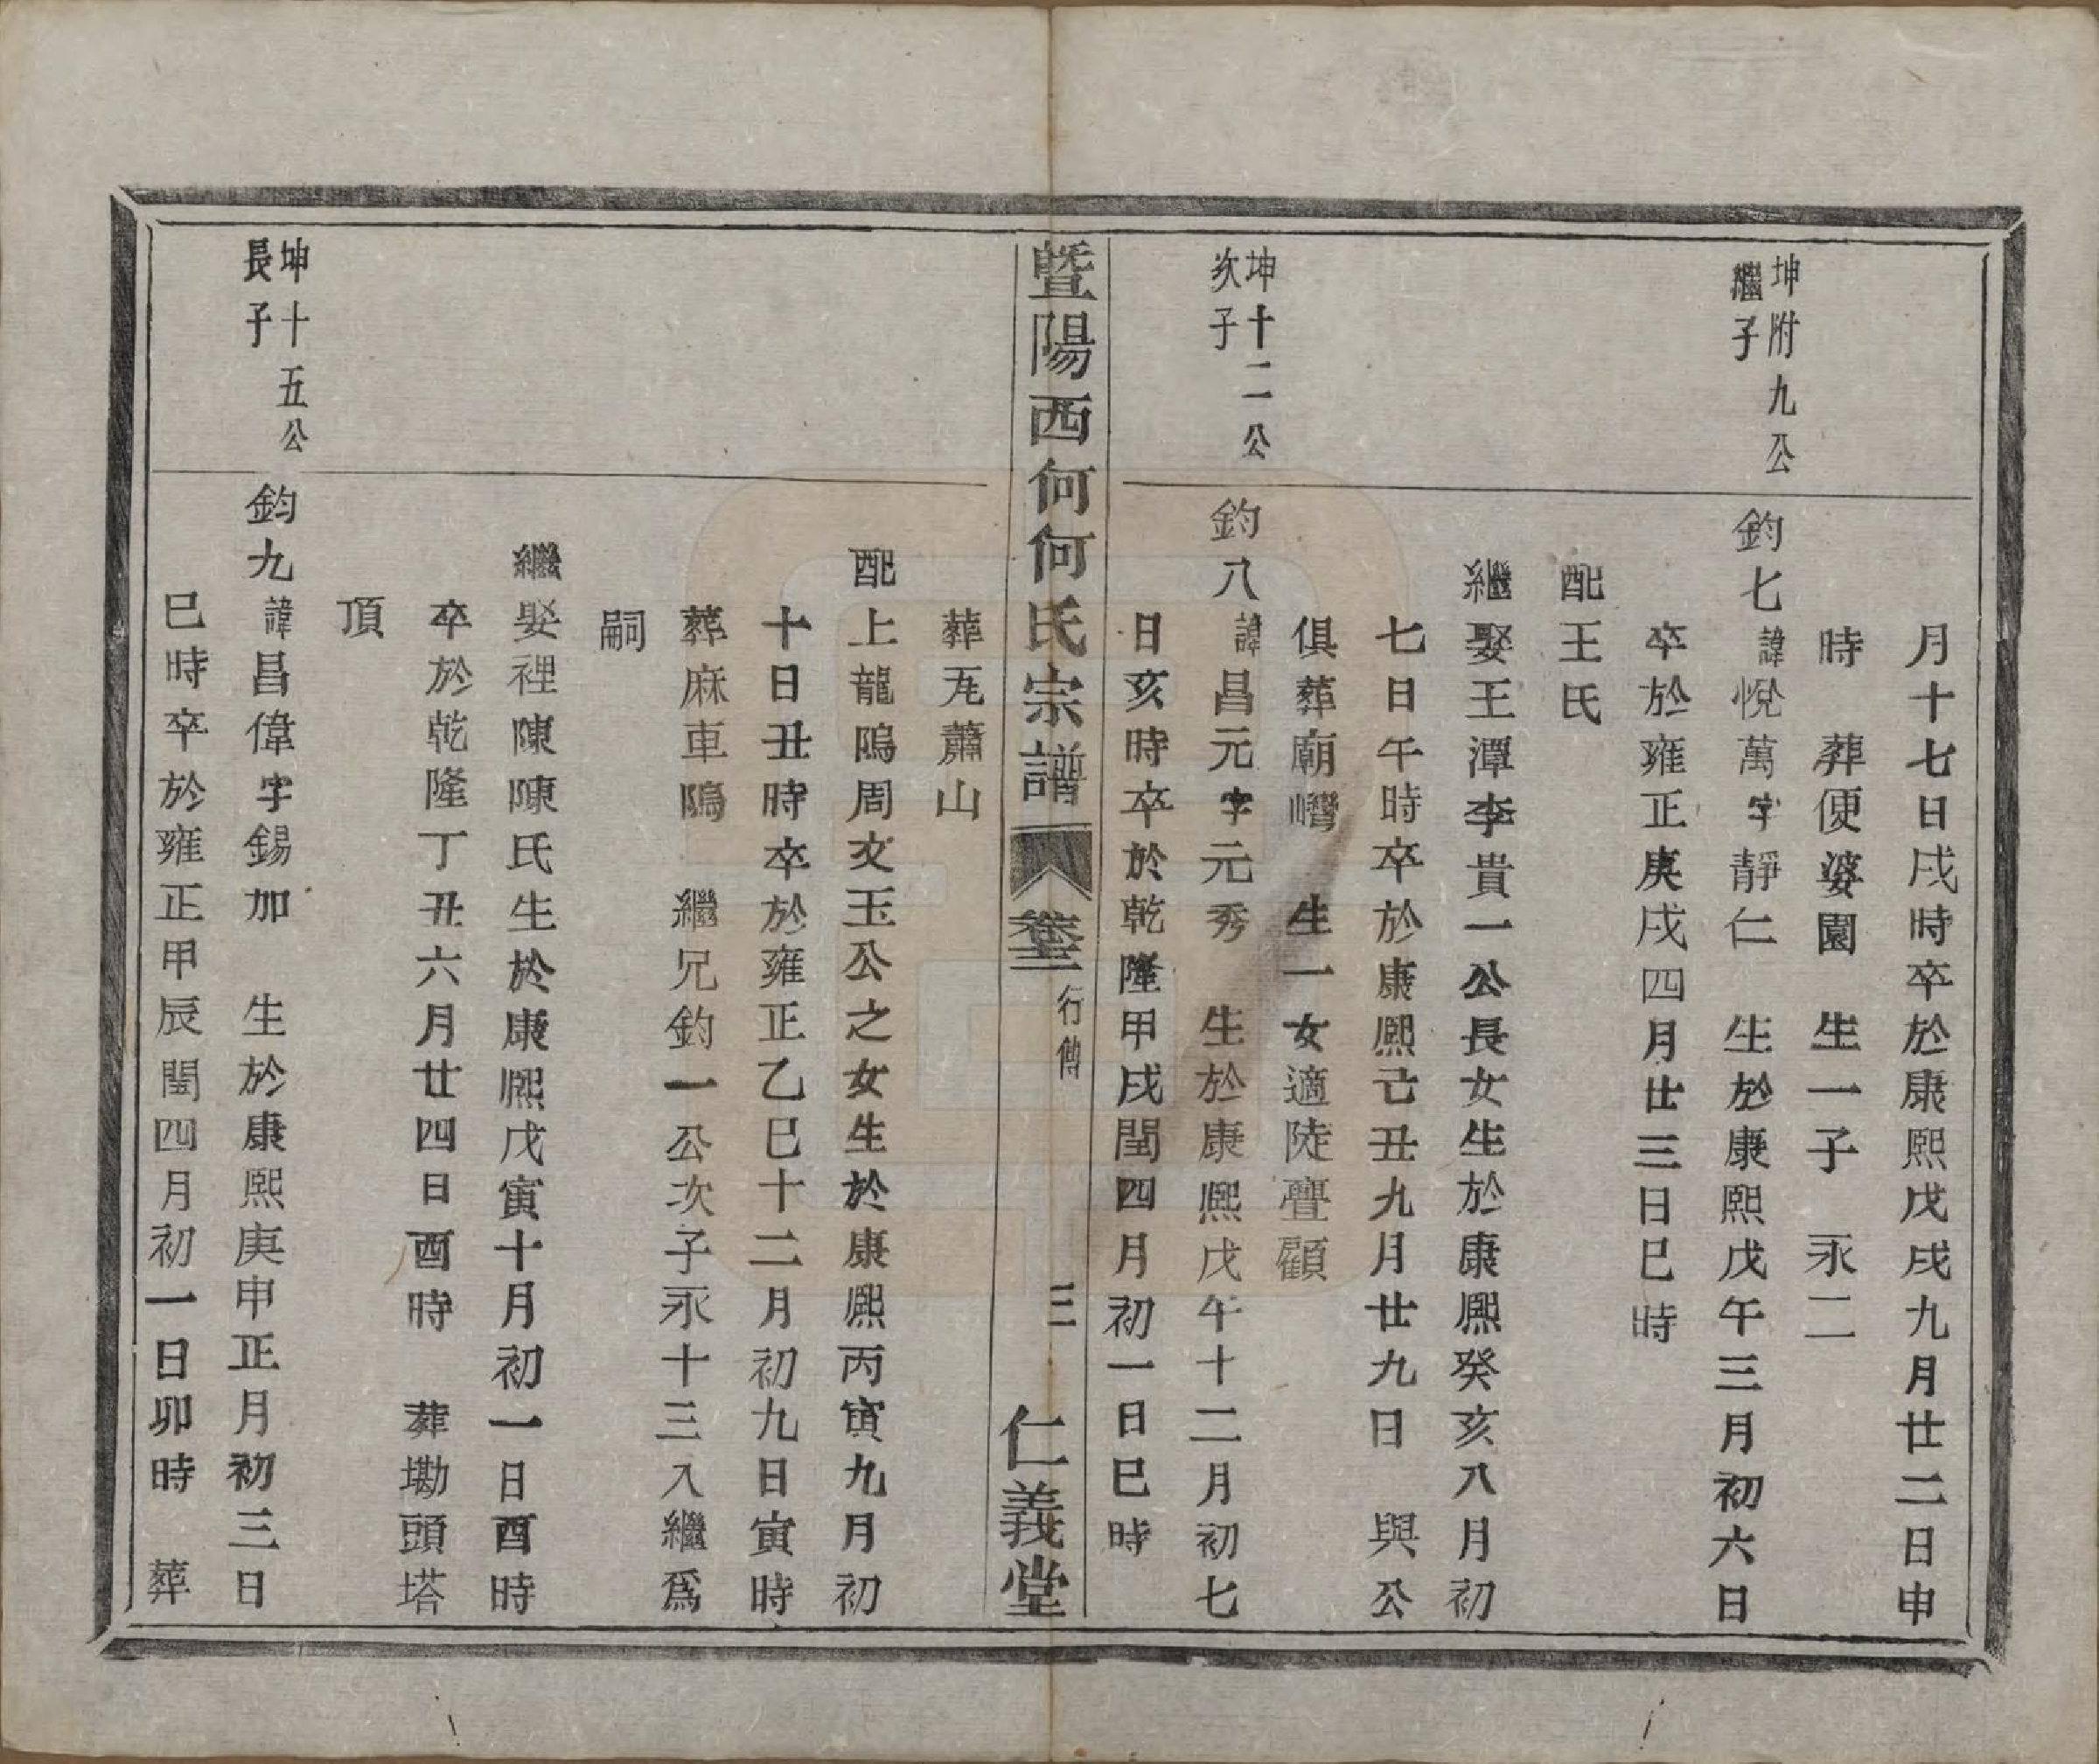 月十七日戌時卒於康熙戊戌九月廿二日申
時　葬便婆園　生一子　永二
坤附九公
繼子
鈞七諱悅萬字靜仁　生於康熙戊午三月初六日
卒於雍正庚戌四月廿三日巳時
配王氏
繼娶王潭李貴一公長女生於康熙癸亥八月初
七日午時卒於康熙己丑九月廿九日　與公
俱葬廟㠝　生一女適陡亹顧
坤十二公
次子
鈞八諱昌元字元秀　生於康熙戊午十二月初七
日亥時卒於乾隆甲戌閏四月初一日巳時
暨陽西何何氏宗譜
卷三
行傳
三
仁義堂
葬旡蕭山
配上龍隖周文玉公之女生於康熙丙寅九月初
十日丑時卒於雍正乙巳十二月初九日寅時
葬麻車隖　繼兄鈞一公次子永十三入繼爲
嗣
繼娶裡陳陳氏生於康熙戊寅十月初一日酉時
卒於乾隆丁丑六月廿四日酉時　葬墈頭塔
頂
坤十五公
長子
鈞九諱昌偉字錫加　生於康熙庚申正月初三日
巳時卒於雍正甲辰閏四月初一日卯時　葬